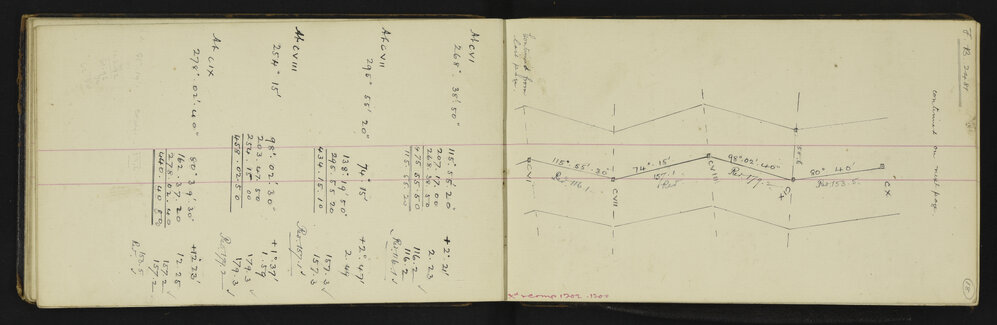 At CVI
268° 38' 50"
115° 55' 20"
207. 17. 00
268. 38. 50
475. 55. 50
115. 55. 20
+2° 21'
2. 23
116. 2
116. 2
Rev 116.1
At CVII
295° 55' 20"
74° 15'
138° 19' 50"
295 55 20
434. 15. 10
+2°. 47'
2. 49
157. 3
157. 3
Rev 157.1
At CVIII
254° 15'
98°. 02'. 30"
203. 47. 50
254. 15. 00
458. 02. 50
+1° 37'
1. 39
179. 3
179. 3
Rev 179.2
At CIX
278°. 02'. 40"
80° 39'. 30"
162. 37. 20
278. 02. 40
440. 40. 00
+12° 23'
12. 25
157. 2
157. 2
Rev 153.5
F. B. 2484
18
continued on next page
Continued from last page
CVI
115° 55' 20"
Rev. 116.1
CVII
74° 15'
157.1
Rev
CVIII
98° 02' 40"
Rev 179.2
CIX
80° 40'
Rev 153.5
CX